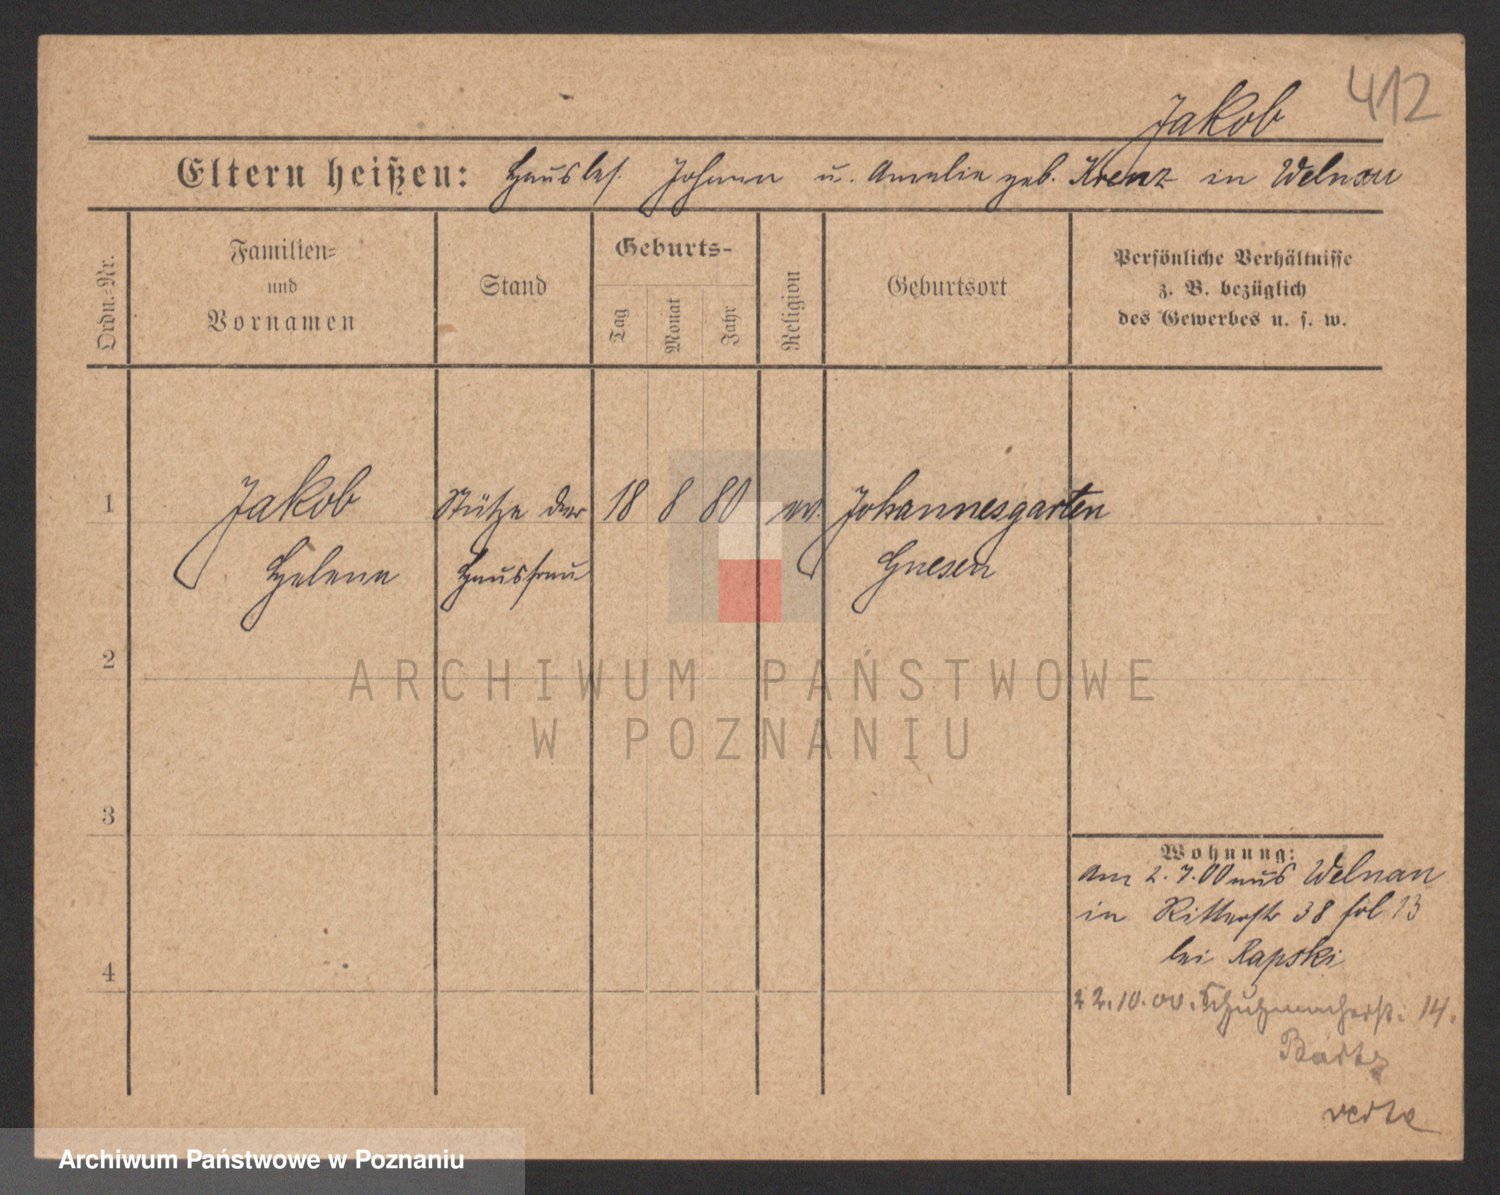 412
Jakob
Eltern heißen: Hausbes. Johann u. Amalie geb. Krenz in Welnau
Ordn.-Nr.
Familien-
und
Vornamen
Stand
Geburts-
Tag
Monat
Jahr
Religion
Geburtsort
Persönliche Verhältnisse
z. B. bezüglich
des Gewerbes u. s. w.
1
Jakob Stütze der 18 8 80 ev. Johannesgarten
Helene Hausfrau Gnesen
2
ARCHIWUM PAŃSTWOWE
W POZNANIU
3
Wohnung:
am 2.7.00 aus Welnau
in Ritterstr 38 fol 13
bei Rapski
22.10.00. Schuhmacherst. 14.
Bartz
4
verte
Archiwum Państwowe w Poznaniu